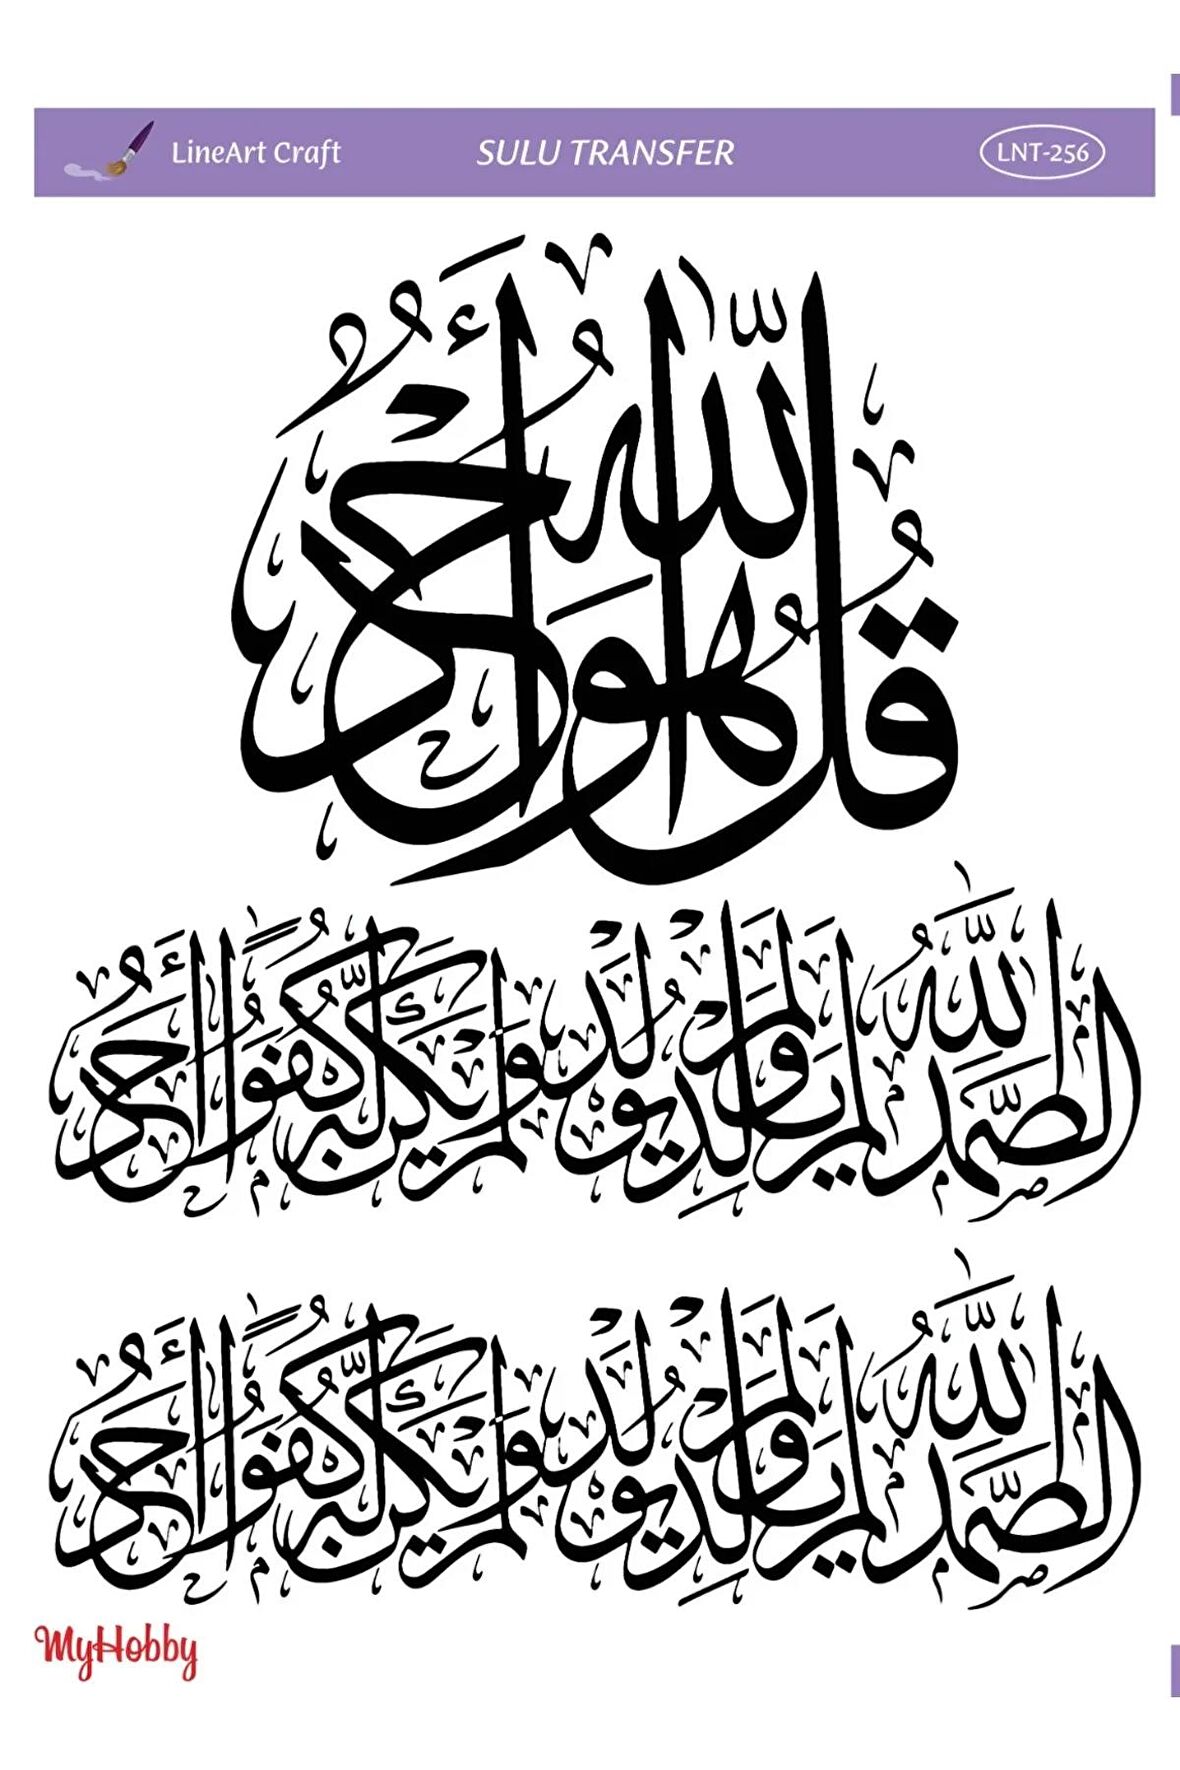 LineArt Craft SULU TRANSFER LNT-256
قُلْ هُوَ اللّٰهُ أَحَدٌ
اللّٰهُ الصَّمَدُ لَمْ يَلِدْ وَلَمْ يُولَدْ وَلَمْ يَكُنْ لَهُ كُفُوًا أَحَدٌ
اللّٰهُ الصَّمَدُ لَمْ يَلِدْ وَلَمْ يُولَدْ وَلَمْ يَكُنْ لَهُ كُفُوًا أَحَدٌ
MyHobby